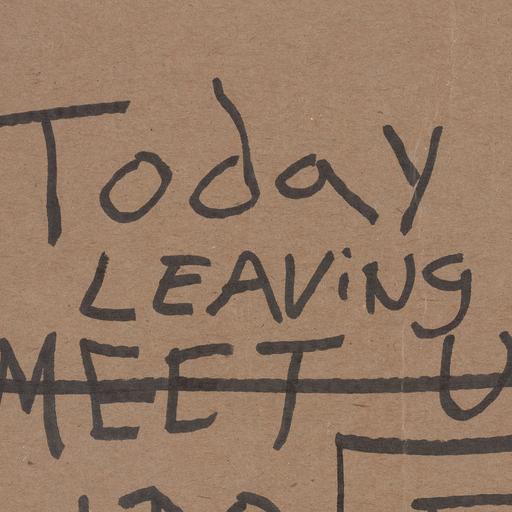 Today
LEAViNg
MEET U